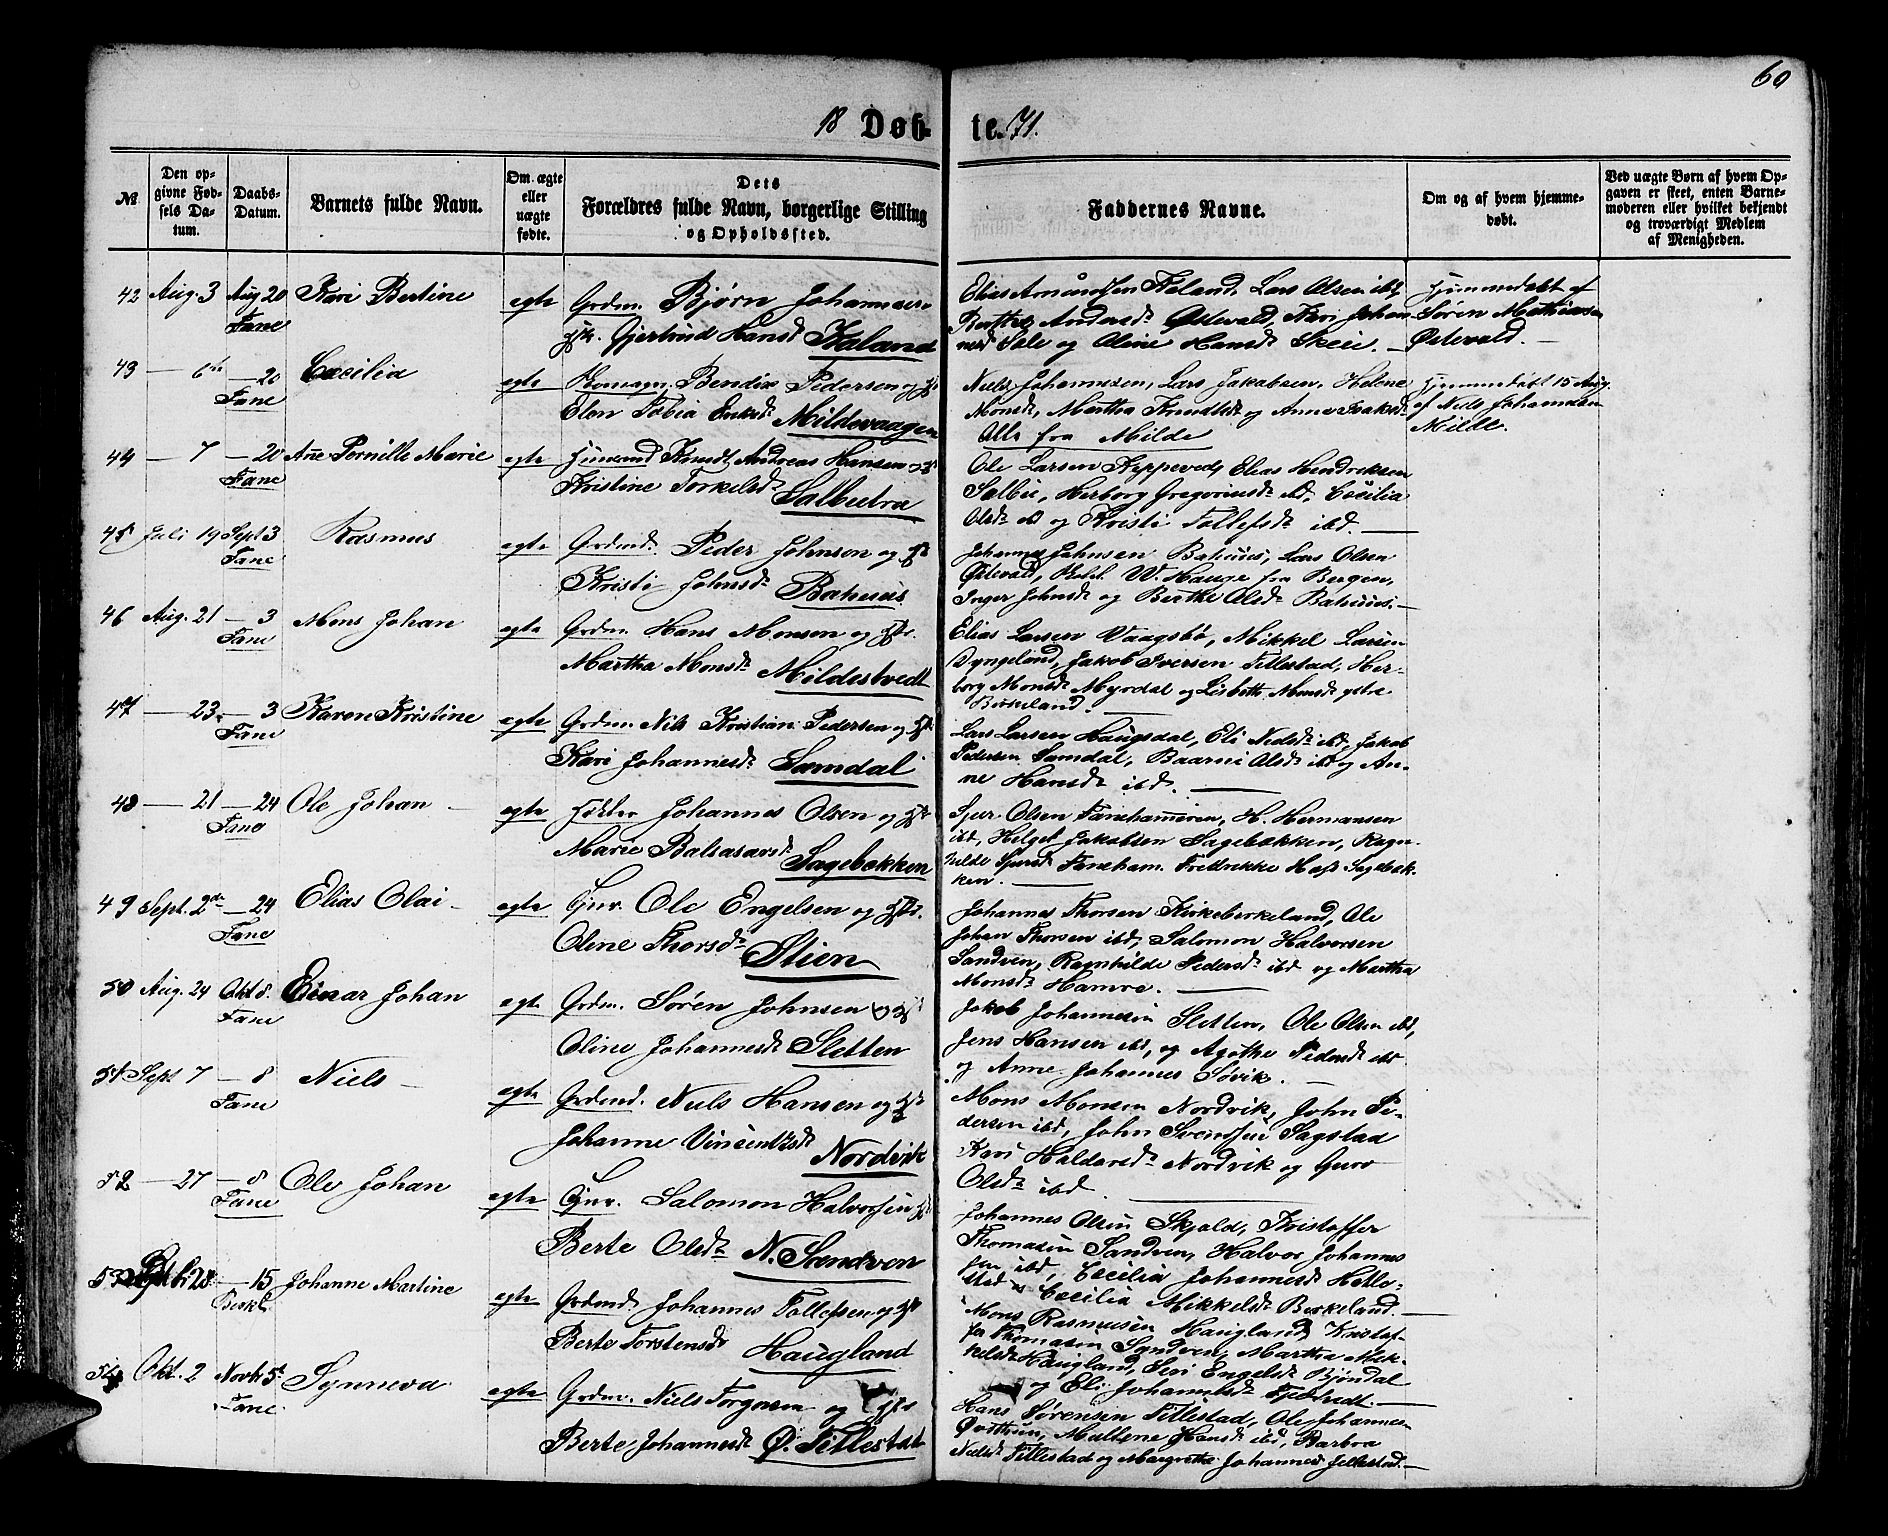 60
18 Døb- te. 71.
№
Den op-
givne Fød-
sels Da-
tum.
Daabs-
Datum.
Barnets fulde Navn.
Om ægte
eller
uægte
fødte.
Dets
Forældres fulde Navn, borgerlige Stilling
og Opholdssted.
Faddernes Navne.
Om og af hvem hjemme-
døbt.
Ved uægte Børn af hvem Op-
gaven er skeet, enten Barne-
moderen eller hvilket bekjendt
og troværdigt Medlem
af Menigheden.
42 Aug. 3 Aug 20 Kari Bertine egte Grdm. Bjørn Johannesen
Fane
Gjertrud Hansd. Kaland
Elias Amundsen Kaland, Lars Olsen ibd,
Berthe Andersd. Østevald, Kari Johan-
nesd Sale og Oline Hansd. Skeie. —
Hjemmedøbt af
Søren Mathiasen
Østevald. —
43 — 6te — 20 Cecilia egte Bendix Pedersen og
Fane
Elen Tobia Mildevaagen
Niels Johannesen, Lars Jakobsen, Helene
Monsd., Martha Knudsd. og Anna Isaksd.
Alle fra Milde
Hjemmedøbt 15 Aug.
af Niels Johannesen
Milde.
44 — 7 — 20 Ane Pernille Marie egte Husmand Knudt Andreas Hansen og
Fane
Kristine Torkelsd. Salbutra
Ole Larsen Kyppeved, Elias Hendriksen
Salbu, Herborg Gregoriusd. ibd, Cecilia
Olsd. ibd og Kristi Tollefsd. ibd. —
45 Juli 19 Sept 3 Rasmus egte Grdmd. Peder Johnson og
Fane
Kristi Johnsd. Bahuus
Johannes Johnsen Bahuus, Lars Olsen
Østevald, W. Hauge fra Bergen,
Inger Johnsd. og Berthe Olsd. Bahuus. —
46 Aug. 21 — 3 Mons Johan egte Grdm. Hans Monsen og
Fane
Martha Monsd. Mildestvedt
Elias Larsen Vaagsbø, Mikkel Larsen
Dyngeland, Jakob Iversen Tillestad, Her-
borg Monsd. Myrdal og Lisbeth Monsd. ystre
Birkeland.
47 — 23. — 3 Karen Kristine egte Grdm. Nils Kristian Pedersen og
Fane
Kari Johannesd. Samdal
Lars Larsen Haugsdal, Eli Nilsd. ibd, Jakob
Pedersen Samdal, Baarni Olsd. ibd og An-
ne Hansd. ibd.
48 — 21 — 24 Ole Johan egte Johannes Olsen og
Fane
Marie Balsasarsd. Sagebækken
Sjur Olsen Fanehammeren, H. Hermansen
ibd, Helget Jakobsen Sagebækken, Ragn-
hilde Sjursd. Faneham. Fredrikke Sagebæk-
ken.
49 Sept. 2de — 24 Elias Olai egte Gur. Ole Engelsen og
Fane
Oline Thorsd. Stien
Johannes Thorsen Kirkebirkeland, Ole
Johan Thorsen ibd, Salomon Halvorsen
Sandven, Ragnhilde Pedersd. ibd og Martha
Monsd. Hamre. —
50 Aug. 24 Okt 8. Einar Johan egte Grdm. Søren Johnsen og
Fane
Oline Johannesd. Sletten
Jakob Johannesen Sletten, Ole Olsen ibd,
Jens Hansen ibd, og Agathe Pedersd. ibd
og Anne Johannes Søvik. —
51 Sept 7 — 8 Niels egte Grdmd. Niels Hansen og
Fane
Johanne Nordvik
Mons Monsen Nordvik, John Pe-
dersen ibd, John Svendsen Sagstad
Kari Haldorsd. Nordvik og Guro
Olsd. ibd.
52 — 27 — 8 Ole Johan egte Gur. Salomon Halvorsen
Fane
Berte Olsd. N. Sandven
Johannes Olsen Skjold, Kristoffer
Thomasen Sandven, Halvor Johannes
sen ibd, Cecilia Johannesd. Hetle-
stad og Cecilia Mikkelsd. Birkeland. —
53 28. — 15 Johanne Martine egte Grdmd. Johannes Tollefsen og
Birkel.
Berte Torstensd. Haugland
Mons Rasmusen Haugland, Kristof-
fer Thomasen Sandven, Martha Mik-
kelsd. Haugland, Siri Engelsd. Bjøndal
og Eli Johannesd.
54 Okt. 2 Novb 5te Synneva egte Grdm. Niels Torgersen og
Fane.
Berte Johannesd. Ø. Tillestad
Hans Sørensen Tillestad, Ole Johannes-
Østtun, Malene Hansd. ibd, Barbra
Nielsd. Tillestad og Margrethe Johannesd. Tillestad. —